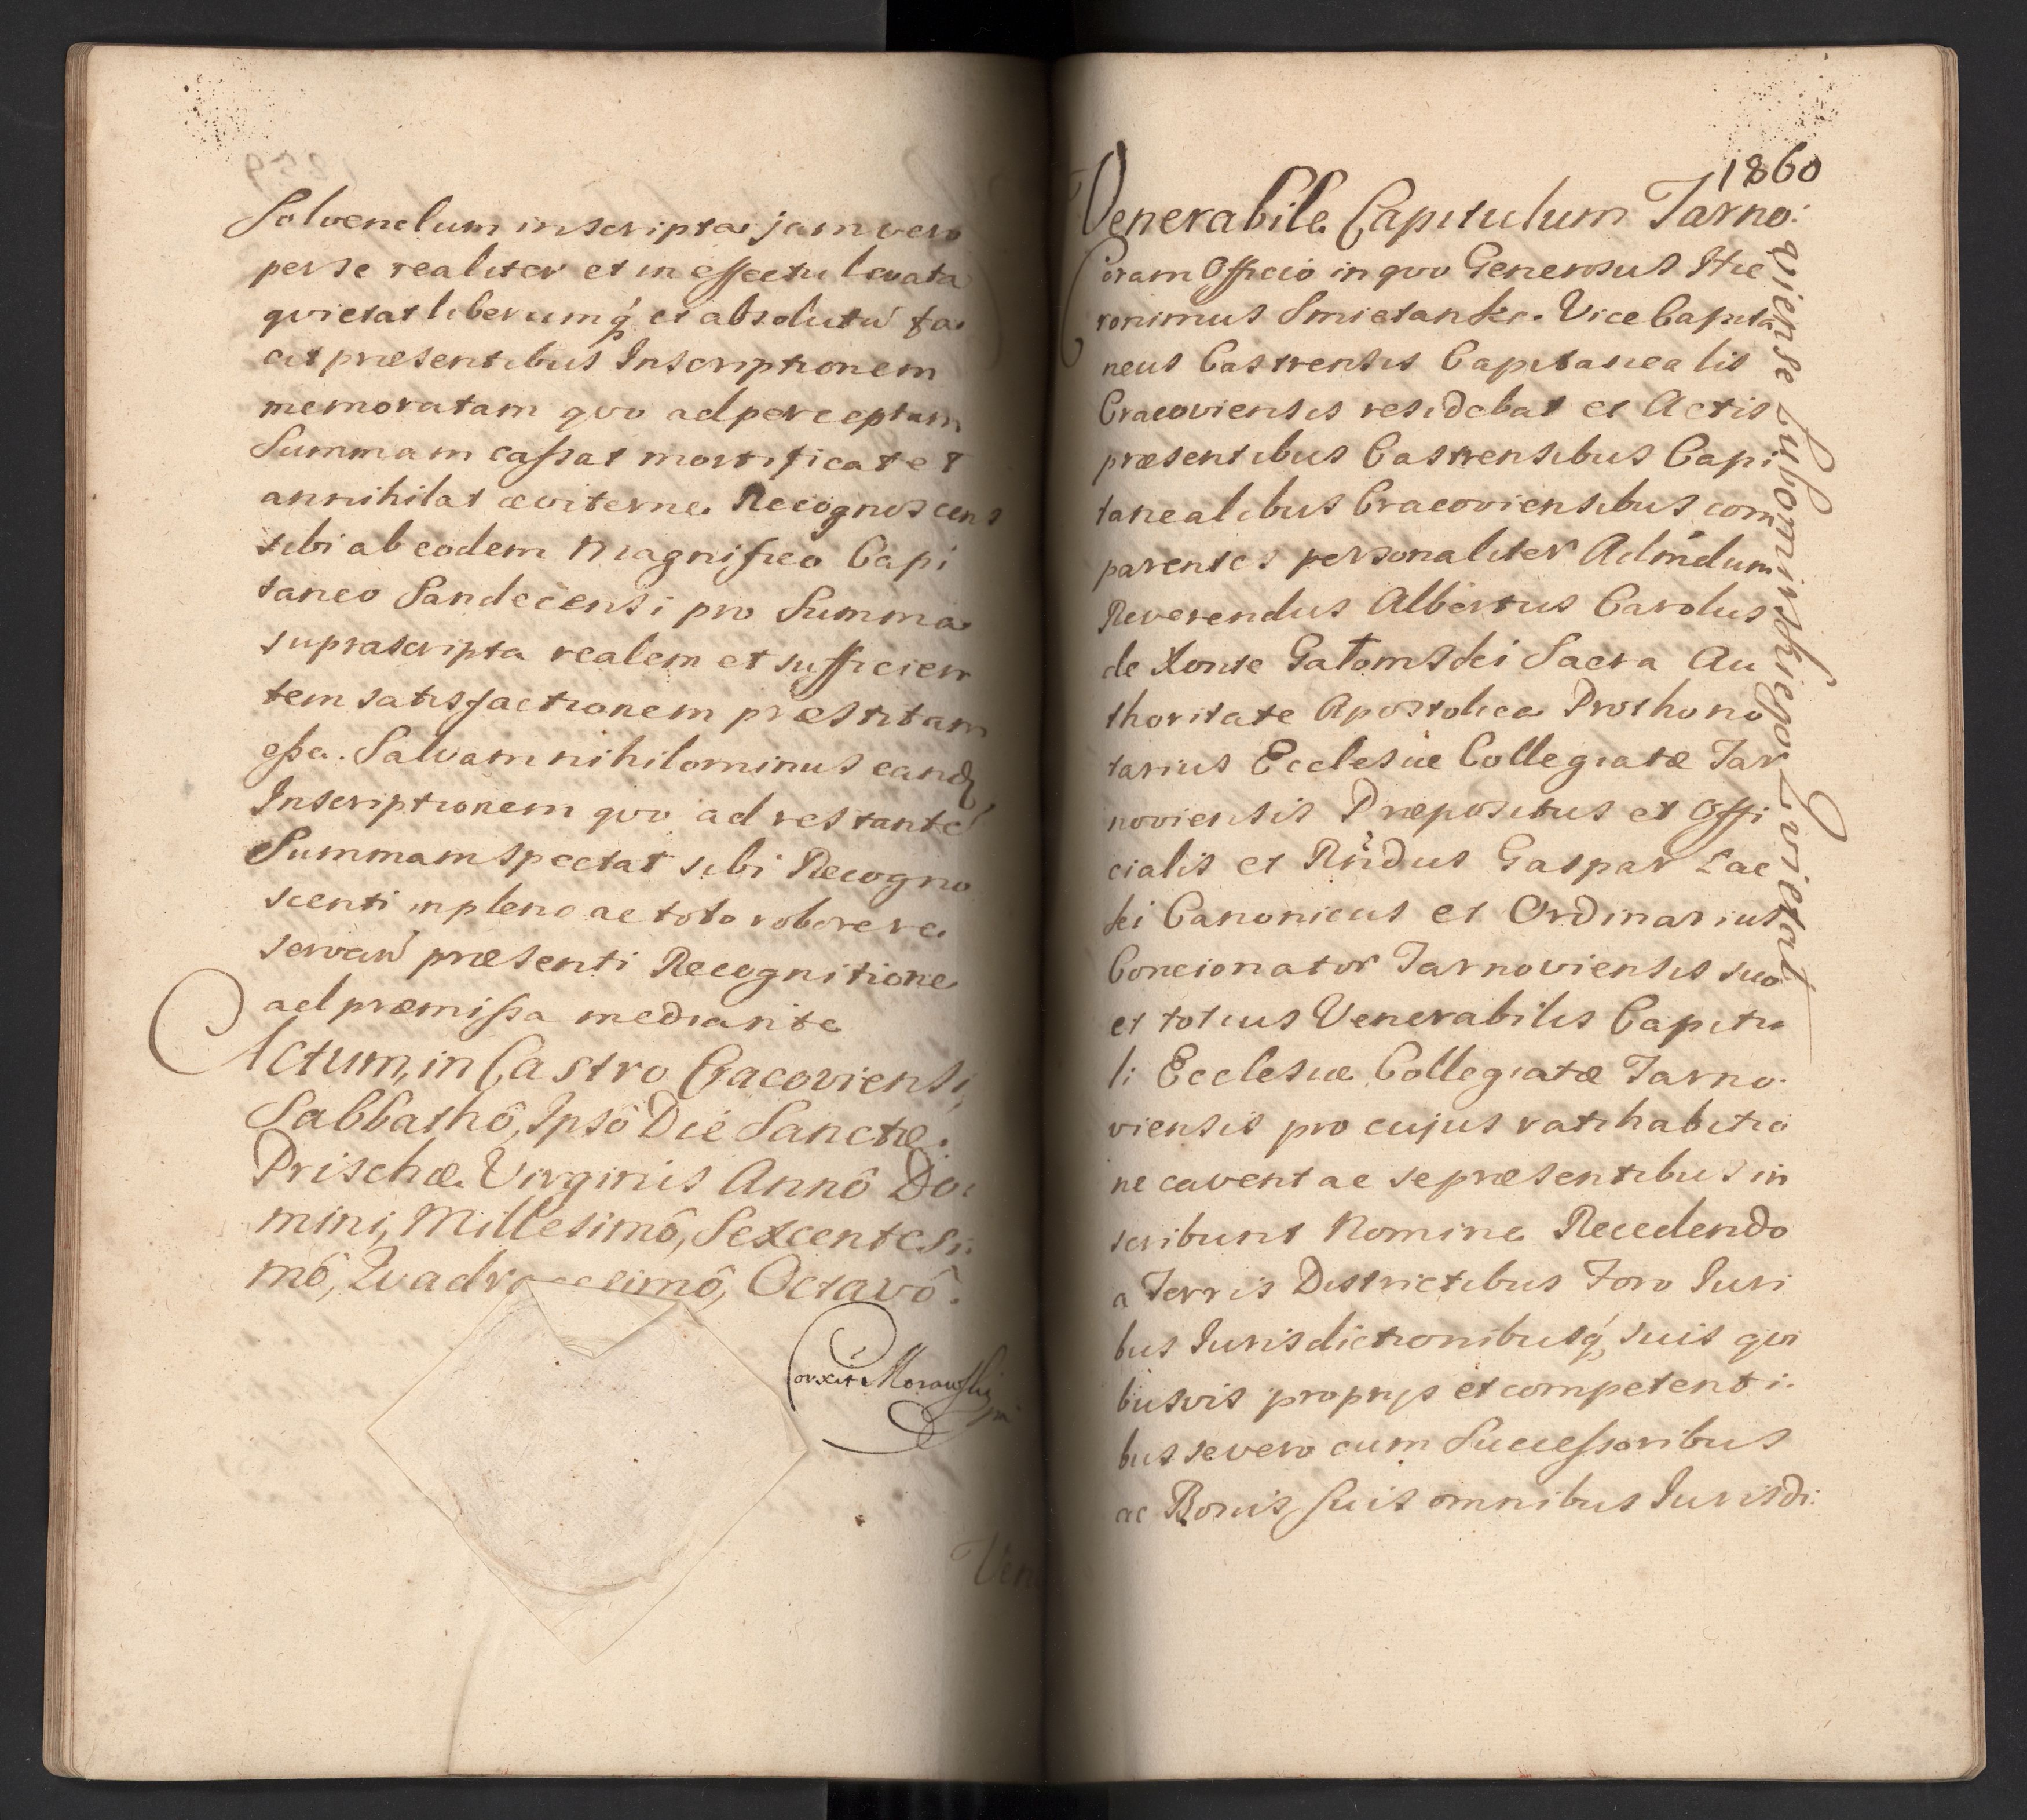 Solvendum inscripta jam vero
per se realiter et in effectu levata
qvietat liberumq́ et absolutū fa
cit præsentibus Inscriptionem
memoratam qvo ad perceptam
Summam cassat mortificat et
annihilat æviterne Recognoscens
sibi ab eodem Magnifico Capi
taneo Sandecensi pro Summa
suprascripta realem et sufficien
tem satisfactionem præstitam
esse. Salvam nihilominus eand
Inscriptionem qvo ad restantē
Summam spectat sibi Recogno
scenti in pleno ac toto robore re
servan præsenti Recognitione
ad præmissa mediante
Actum, in Castro Cracoviensi,
Sabbathô, Ipsô Die Sanctæ
Prischæ Virginis Annô Do:
mini, Millesimô, Sexcentesi:
mô, Octavô.
Corxit Morawski
Ven
1860
Venerabile Capitulum Tarno:
viense Lubomirskiego Qvietat
Coram Officio in qvo Generosus Hie
ronimus Smietanka Vice Capita
neus Castrensis Capitanealis
Cracoviensis residebat et Actis
præsentibus Castrensibus Capi
tanealibus Cracoviensibus com
parentes personaliter Admdum
Reverendus Albertus Carolus
de Xonse Gatomski Sacra Au
thoritate Apostolica Prothono
tarius Ecclesiæ Collegiatæ Tar
noviensis Præpositus et Offi
cialis et Rndus Gaspar Lac
ki Canonicus et Ordinarius
Concionator Tarnoviensis suo
et totius Venerabilis Capitu
li Ecclesiæ Collegiatæ Tarno:
viensis pro cujus ratihabitio
ne cavent ac se præsentibus in
scribunt Nomine Recedendo
a Terris Districtibus Foro Iuri
bus Iurisdictionibusq́ suis qvi
busvis proprys et competenti:
bus se vero cum Successoribus
ac Bonis suis omnibus Iurisdi: